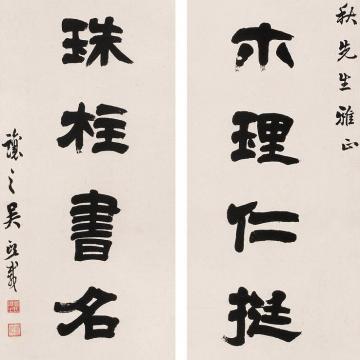 秋先生雅正
木理仁挺
珠柱書名
讓之吳熙載